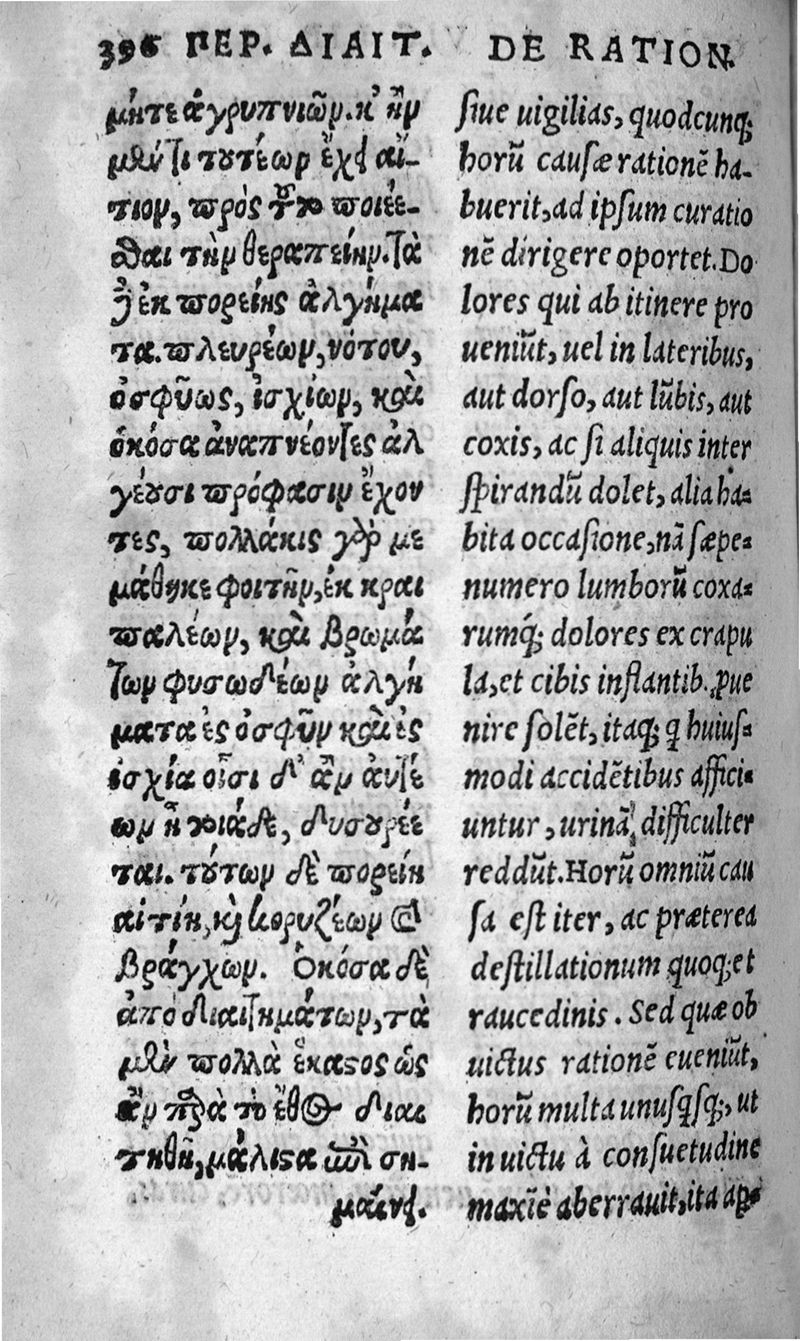 396 ΠΕΡ. ΔΙΑΙΤ.
μήτε ἀγρυπνιῶν. κἢν
μέν τι τȣτέων ἔχῃ αἴ-
τιον, πρὸς τȣ͂το ποιέε-
σθαι τὴν θεραπείην. τὰ
δ' ἐκ πορείης ἀλγήμα
τα. πλευρέων, νότου,
ὀσφῦως, ἰσχίων, καὶ
ὁκόσα ἀναπνέοντες ἀλ
γέȣσι πρόφασιν ἔχον
τες, πολλάκις γὰρ με
μάθηκε φοιτῆν, ἐκ κραι
παλέων, καὶ βρωμά
των φυσωδέων ἀλγή
ματα ἐς ὀσφῦν καὶ ἐς
ἰσχία οἷσι δ' ἂν
ται. τȣ́των δὲ πορείη
αἰτίη, κỳ κορυζέων καὶ
βράγχων. Ὁκόσα δὲ
ἀπὸ διαιτημάτων, τὰ
μὲν πολλὰ ἕκαϛος ὡς
ἂν παρὰ τὸ ἔθος διαι
τηθῇ, μάλιϛα ἐπι ση-
μαίνει.
DE RATION.
siue uigilias, quodcunq;
horũ causæ rationẽ ha-
buerit, ad ipsum curatio
nẽ dirigere oportet. Do
lores qui ab itinere pro
ueniũt, uel in lateribus,
aut dorso, aut lũbis, aut
coxis, ac si aliquis inter
spirandũ dolet, alia ha-
bita occasione, nã sæpe-
numero lumborũ coxa-
rumq́; dolores ex crapu
la, et cibis inflantib. ꝓue
nire solẽt, itaq; q huius-
modi accidẽtibus affici-
untur, urinã difficulter
reddũt. Horũ omniũ cau
sa est iter, ac præterea
destillationum quoq; et
raucedinis. Sed quæ ob
uictus rationẽ eueniũt,
horũ multa unusqsq;, ut
in uictu à consuetudine
maxĩè aberrauit, ita ap-